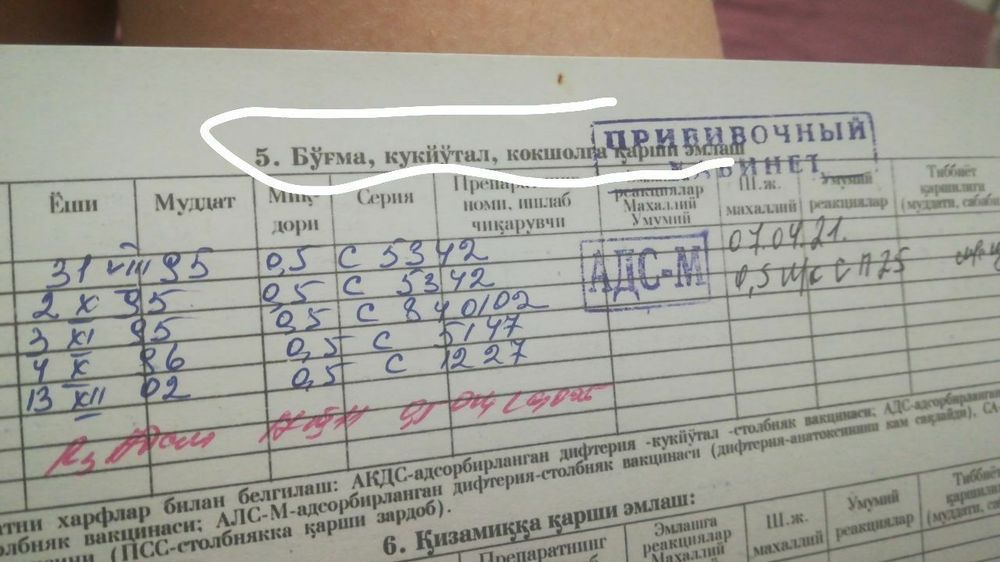 5. Бўғма, кукйўтал, кокшолга қарши эмлаш
ПРИВИВОЧНЫЙ
КАБИНЕТ
Ёши Муддат Миқ-дори Серия Препаратнинг номи, ишлаб чиқарувчи Эмлашга реакциялар Махаллий Умумий Ш.ж. махаллий Умумий реакциялар Тиббиёт қаршилиги (муддати, сабаби
31 VIII 95 0,5 С 5342 АДС-М 07.04.21.
2 X 95 0,5 С 5342 0,5 И/к С П25
3 XI 95 0,5 С 840102
4 X 96 0,5 С 5147
13 XII 02 0,5 С 1227
харфлар билан белгилаш: АКДС-адсорбирланган дифтерия -кукйўтал -столбняк вакцинаси; АДС-адсорбирланган
вакцинаси; АЛС-М-адсорбирланган дифтерия-столбняк вакцинаси (дифтерия-анатоксинини кам сақлайди). СА
(ПСС-столбнякка қарши зардоб).
6. Қизамиққа қарши эмлаш:
Препаратнинг Эмлашга реакциялар Махаллий Ш.ж. махаллий Умумий реакциялар Тиббиёт қаршилиги (муддати,